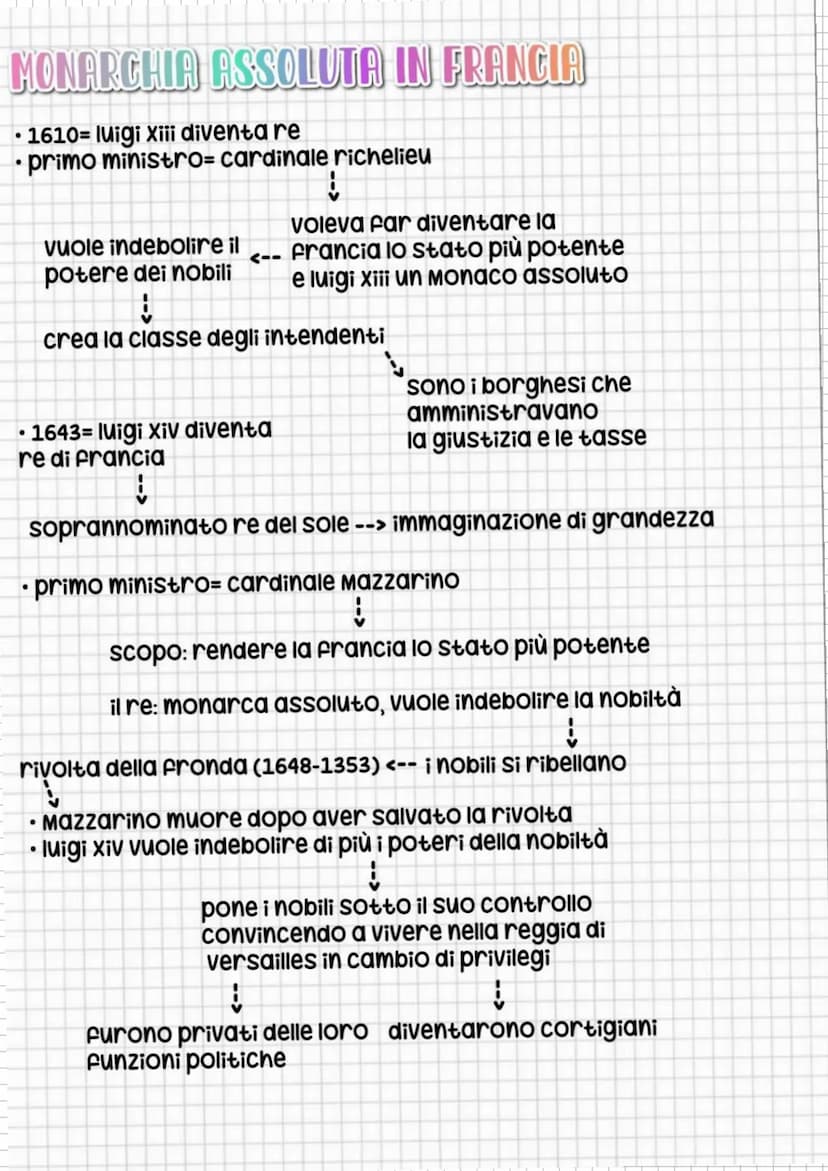 MONARCHIA ASSOLUTA IN FRANCIA
• 1610= luigi xiii diventa re
• primo ministro= cardinale richelieu
voleva far diventare la
vuole indebolire il <-- francia lo stato più potente
potere dei nobili e luigi xiii un monaco assoluto
crea la classe degli intendenti
sono i borghesi che
amministravano
• 1643= luigi xiv diventa la giustizia e le tasse
re di francia
soprannominato re del sole --> immaginazione di grandezza
• primo ministro= cardinale mazzarino
scopo: rendere la francia lo stato più potente
il re: monarca assoluto, vuole indebolire la nobiltà
rivolta della fronda (1648-1353) <-- i nobili si ribellano
• mazzarino muore dopo aver salvato la rivolta
• luigi xiv vuole indebolire di più i poteri della nobiltà
pone i nobili sotto il suo controllo
convincendo a vivere nella reggia di
versailles in cambio di privilegi
furono privati delle loro diventarono cortigiani
funzioni politiche